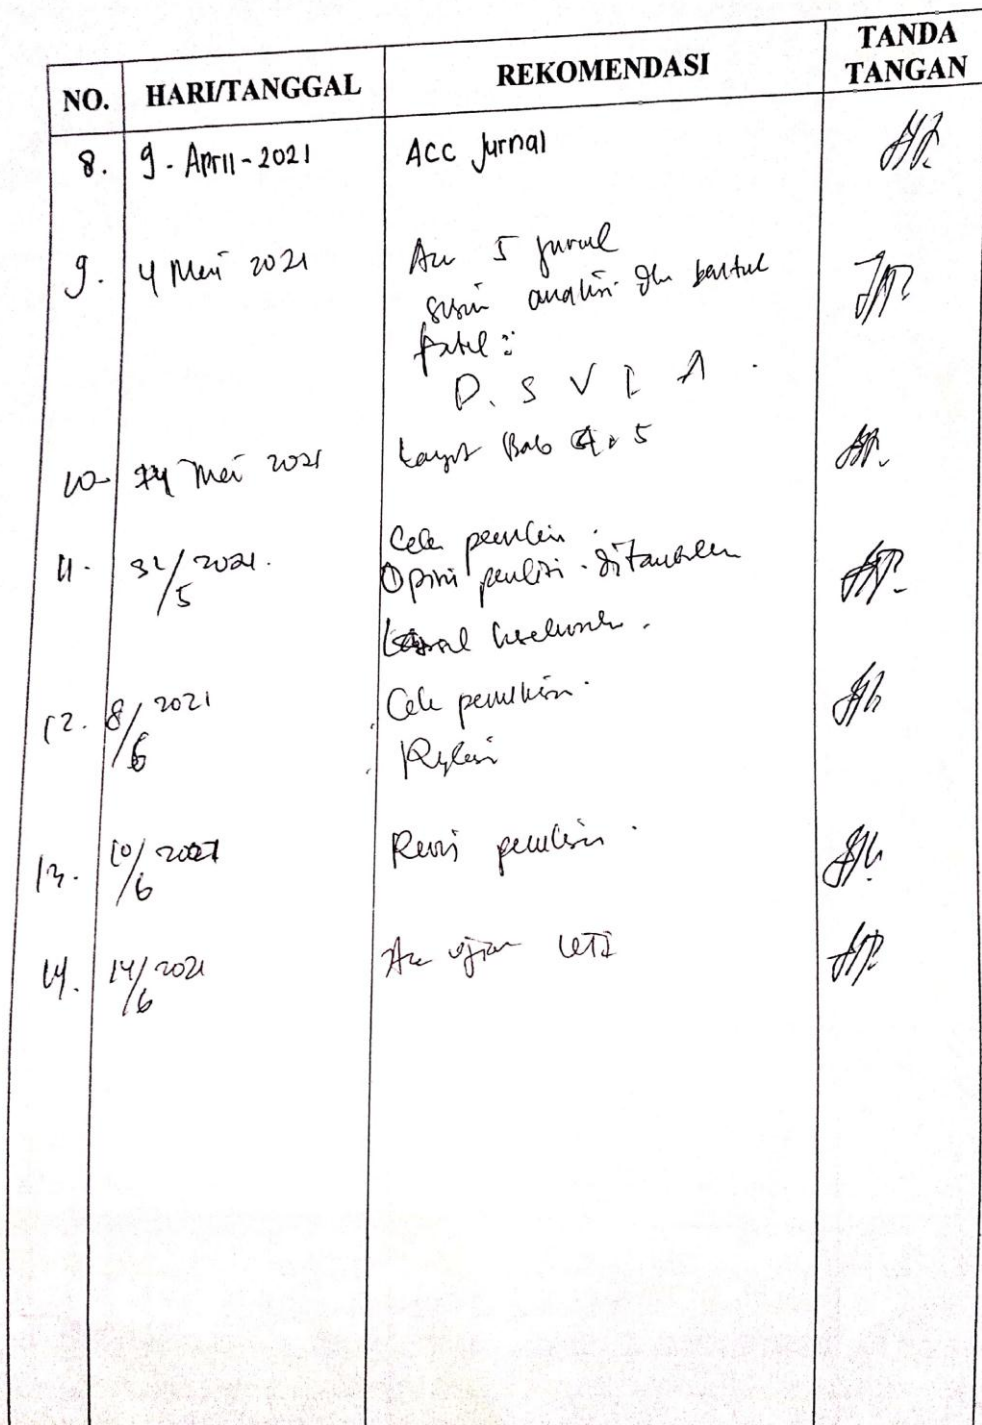 NO. HARI/TANGGAL REKOMENDASI TANDA TANGAN
8. 9 - April - 2021 Acc Jurnal
9. 4 Mei 2021 Acc 5 jurnal
susun analisis dlm bentuk
tabel :
D. S V I A .
10. Mei 2021 Lanjut Bab 4 & 5
11. 31/5 2021. Cek penulisan .
Opini peneliti ditambahkan
12. 8/6 2021 Cek penulisan .
13. 10/6 2021 Revisi penulisan .
14. 14/6 2021 Acc ujian